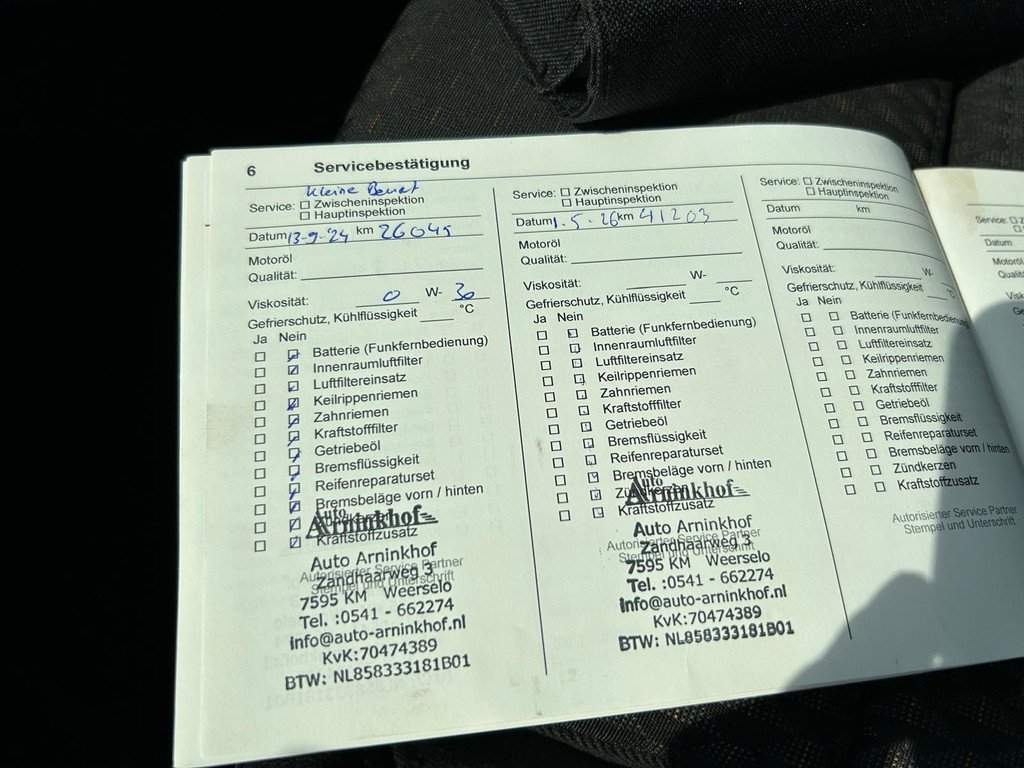 6 Servicebestätigung
Kleine Beurt
Service: Zwischeninspektion
Hauptinspektion
Datum 13-9-'24 km 26045
Motoröl
Qualität:
Viskosität: 0 W- 30
Gefrierschutz, Kühlflüssigkeit °C
Ja Nein
Batterie (Funkfernbedienung)
Innenraumluftfilter
Luftfiltereinsatz
Keilrippenriemen
Zahnriemen
Kraftstofffilter
Getriebeöl
Bremsflüssigkeit
Reifenreparaturset
Bremsbeläge vorn / hinten
Kraftstoffzusatz
Autorisierter Service Partner
Stempel und Unterschrift
Auto
Arninkhof
Auto Arninkhof
Zandhaarweg 3
7595 KM Weerselo
Tel. :0541 - 662274
info@auto-arninkhof.nl
KvK:70474389
BTW: NL858333181B01
Service: Zwischeninspektion
Hauptinspektion
Datum 1-5-26 km 41203
Motoröl
Qualität:
Viskosität: W-
Gefrierschutz, Kühlflüssigkeit °C
Ja Nein
Batterie (Funkfernbedienung)
Innenraumluftfilter
Luftfiltereinsatz
Keilrippenriemen
Zahnriemen
Kraftstofffilter
Getriebeöl
Bremsflüssigkeit
Reifenreparaturset
Bremsbeläge vorn / hinten
Zündkerzen
Kraftstoffzusatz
Autorisierter Service Partner
Stempel und Unterschrift
Auto
Arninkhof
Auto Arninkhof
Zandhaarweg 3
7595 KM Weerselo
Tel. :0541 - 662274
info@auto-arninkhof.nl
KvK:70474389
BTW: NL858333181B01
Service: Zwischeninspektion
Hauptinspektion
Datum km
Motoröl
Qualität:
Viskosität: W-
Gefrierschutz, Kühlflüssigkeit °C
Ja Nein
Batterie (Funkfernbedienung)
Innenraumluftfilter
Luftfiltereinsatz
Keilrippenriemen
Zahnriemen
Kraftstofffilter
Getriebeöl
Bremsflüssigkeit
Reifenreparaturset
Bremsbeläge vorn / hinten
Zündkerzen
Kraftstoffzusatz
Autorisierter Service Partner
Stempel und Unterschrift
Service:
Datum
Motoröl